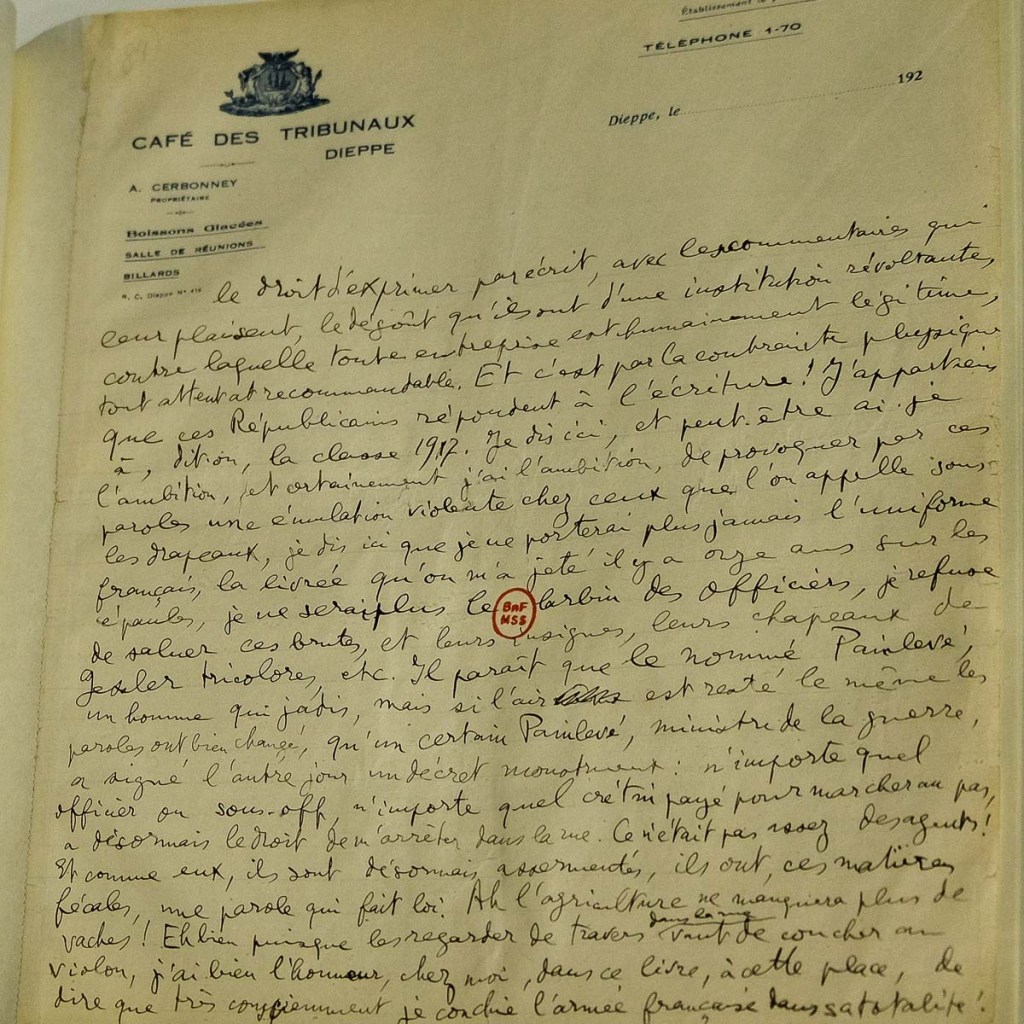 Établissement le
TÉLÉPHONE 1-70
Dieppe, le 192
CAFÉ DES TRIBUNAUX
DIEPPE
A. CERBONNEY
PROPRIÉTAIRE
Boissons Glacées
SALLE DE RÉUNIONS
BILLARDS
R. C. Dieppe N° 416
le droit d'exprimer par écrit, avec les commentaires qui
leur plaisent, le dégoût qu'ils ont d'une institution révoltante,
contre laquelle toute entreprise est humainement légitime,
tout attentat recommandable. Et c'est par la contrainte physique
que ces Républicains répondent à l'écriture! J'appartiens
à, dit-on, la classe 1917. Je dis ici, et peut-être ai-je
l'ambition, et certainement j'ai l'ambition, de provoquer par ces
paroles une émulation violente chez ceux que l'on appelle sous
les drapeaux, je dis ici que je ne porterai plus jamais l'uniforme
français, la livrée qu'on m'a jeté il y a onze ans sur les
épaules, je ne serai plus le larbin des officiers, je refuse
de saluer ces brutes, et leurs insignes, leurs chapeaux de
Gessler tricolores, etc. Il paraît que le nommé Painlevé,
un homme qui jadis, mais si l'air est resté le même les
paroles ont bien changé, qu'un certain Painlevé, ministre de la guerre,
a signé l'autre jour un décret monstrueux: n'importe quel
officier ou sous-off, n'importe quel crétin payé pour marcher au pas,
a désormais le droit de m'arrêter dans la rue. Ce n'était pas assez des agents!
Et comme eux, ils sont désormais assermentés, ils ont, ces matières
fécales, une parole qui fait loi. Ah l'agriculture ne manquera plus de
vaches! Eh bien puisque les regarder de travers dans la rue vaut de coucher au
violon, j'ai bien l'honneur, chez moi, dans ce livre, à cette place, de
dire que très consciemment je conchie l'armée française dans sa totalité!
BnF
MSS